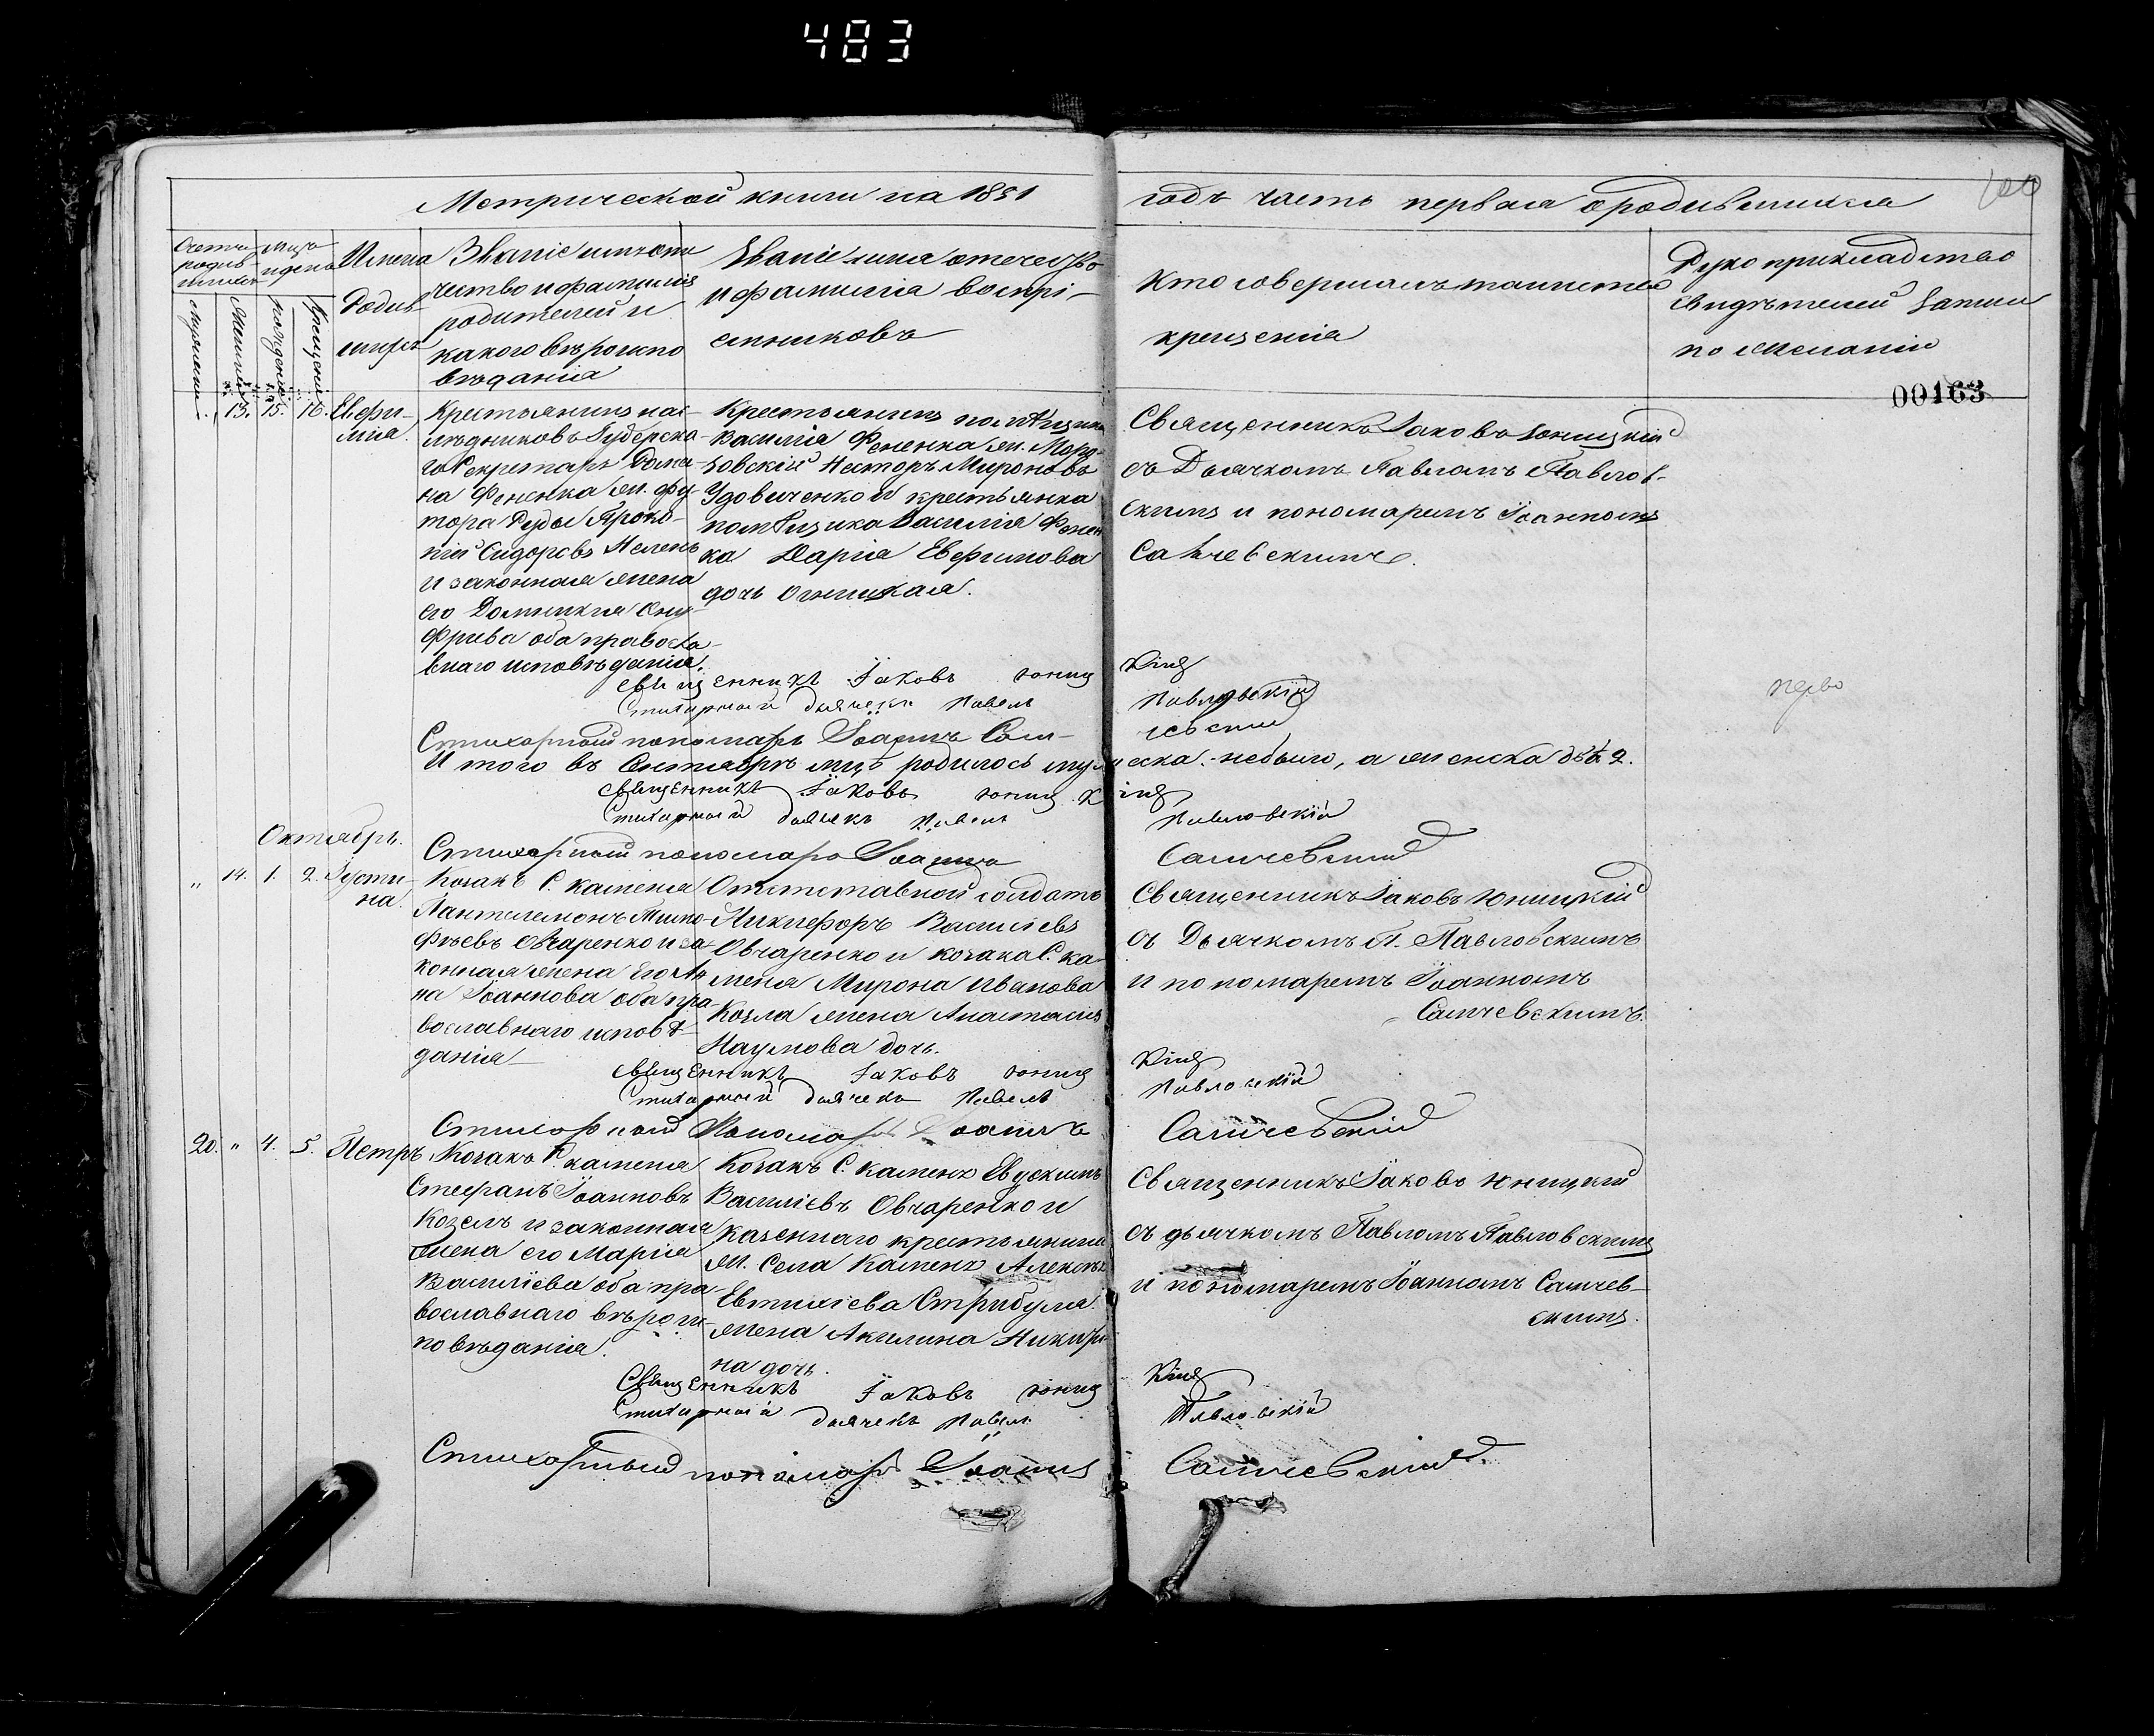 483
Метрической книги на 1851 годъ часть первая о родившихся
100
Счетъ родив-шихся
Мѣсяцъ и день
Имена Родив-шихся
Званіе имя отчество и фамилія родителей и какого вѣроисповѣданія
Званіе имя отечество и фамилія воспріемниковъ
Кто совершалъ таинство крещенія
Рукоприкладство свидѣтелей записи по желанію
Рожденія
Крещенія
00163
13. 15. 16. Евфи-
мія.
Крестьянинъ нас-
лѣдниковъ Губернска-
го Секретаря Рома-
на Фененка жи. фу-
тора Руды Проко-
пій Сидоровъ
и законная жена
его Домникія Они-
фріева оба правосла-
внаго исповѣданія.
Крестьянинъ помѣщика
Василія Фененка жи.
Несторъ Мироновъ
Удовиченко и крестьянка
помѣщика Василія Фенен
ка Дарія Ефимова
дочь
Священникъ Іаковъ Юницкій
съ Дьячкомъ Павломъ Павлов-
скимъ и пономаремъ Іоанномъ
Самчевскимъ.
Священникъ Іаковъ Юницкій
Стихарный дьячекъ Павелъ Павловскій
Стихарный пономарь Іоаннъ Самчевскій
Итого въ Сентябрѣ мцѣ родилось мужеска небыло, а женска двѣ 2.
перо
Священникъ Іаковъ Юницкій
Стихарный дьячекъ Павелъ Павловскій
Октябрь.
Стихарный пономарь Іоаннъ Самчевскій
„ 14. 1. 2. Іусти-
на.
Козакъ С. Каменя
Пантелемонъ Тимо-
фѣевъ Овчаренко и за-
конная жена его Ан
на Іоаннова оба пра-
вославнаго исповѣ-
данія
Отставной солдатъ
Никифоръ Васильевъ
Овчаренко и козака С. Ка-
меня Мирона Иванова
Козла жена Анастасія
Наумова дочь.
Священникъ Іаковъ Юницкій
съ Дьячкомъ П. Павловскимъ
и пономаремъ Іоанномъ
Самчевскимъ.
Священникъ Іаковъ Юницкій
Стихарный дьячекъ Павелъ Павловскій
Стихарный Пономарь Іоаннъ Самчевскій
20. „ 4. 5. Петръ
Козакъ С. Каменя
Стефанъ Іоанновъ
Козелъ и законная
жена его Марія
Василіева оба пра-
вославнаго вѣроис-
повѣданія.
Козакъ С. Каменя Евдокимъ
Василіевъ Овчаренко и
казеннаго крестьянина
жи. Села Каменя Алексѣя
Евтихіева Стрибуля
жена Акилина Никифо
на дочь.
Священникъ Іаковъ Юницкій
съ дьячкомъ Павломъ Павловскимъ
и пономаремъ Іоанномъ Самчев-
скимъ.
Священникъ Іаковъ Юницкій
Стихарный дьячекъ Павелъ Павловскій
Стихарный пономарь Іоаннъ Самчевскій